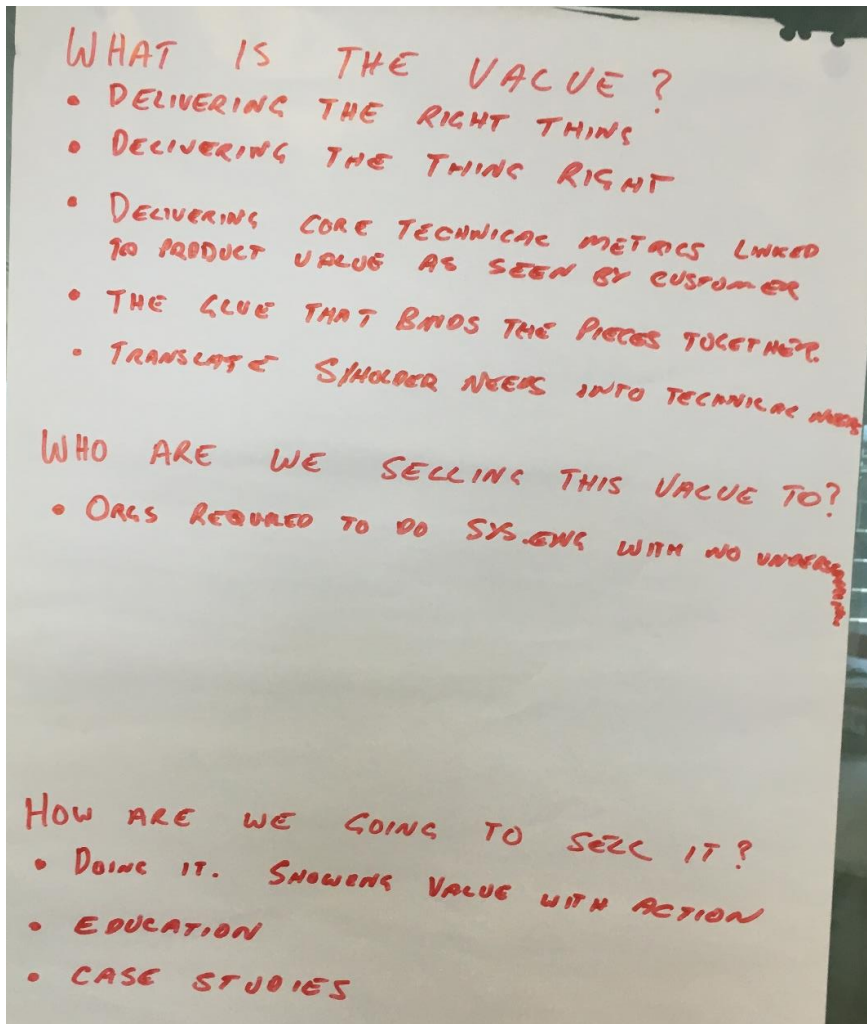 WHAT IS THE VALUE?
• DELIVERING THE RIGHT THING
• DELIVERING THE THING RIGHT
• DELIVERING CORE TECHNICAL METRICS LINKED
TO PRODUCT VALUE AS SEEN BY CUSTOMER
• THE GLUE THAT BINDS THE PIECES TOGETHER.
• TRANSLATE S/HOLDER NEEDS INTO TECHNICAL NEEDS
WHO ARE WE SELLING THIS VALUE TO?
• ORGS REQUIRED TO DO SYS.ENG WITH NO
HOW ARE WE GOING TO SELL IT?
• DOING IT. SHOWING VALUE WITH ACTION
• EDUCATION
• CASE STUDIES